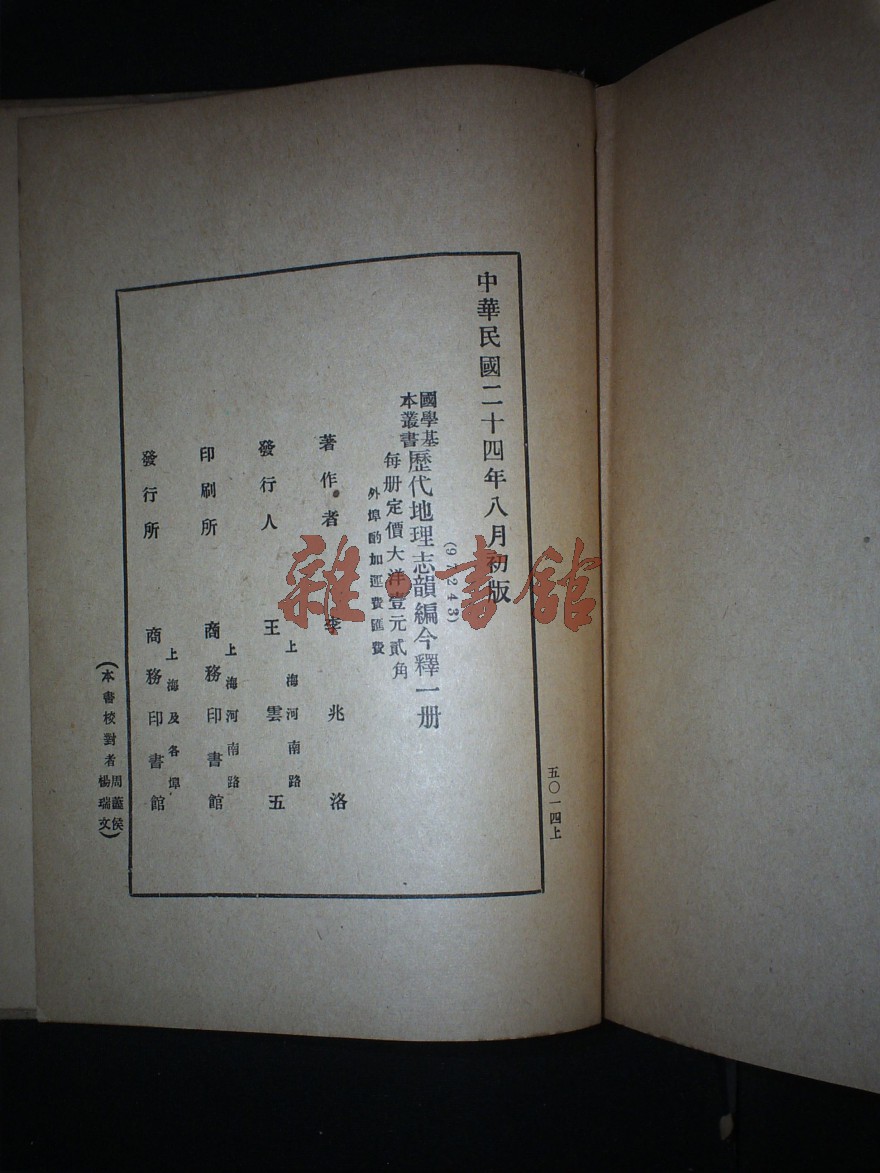 中華民國二十四年八月初版
(97243)
國學基本叢書 歷代地理志韻編今釋一册
每册定價大洋壹元貳角
外埠酌加運費匯費
著作者 李兆洛
上海河南路
發行人 王雲五
上海河南路
印刷所 商務印書館
上海及各埠
發行所 商務印書館
(本書校對者 周蓋侯 楊瑞文)
五〇一四上
雜·書館